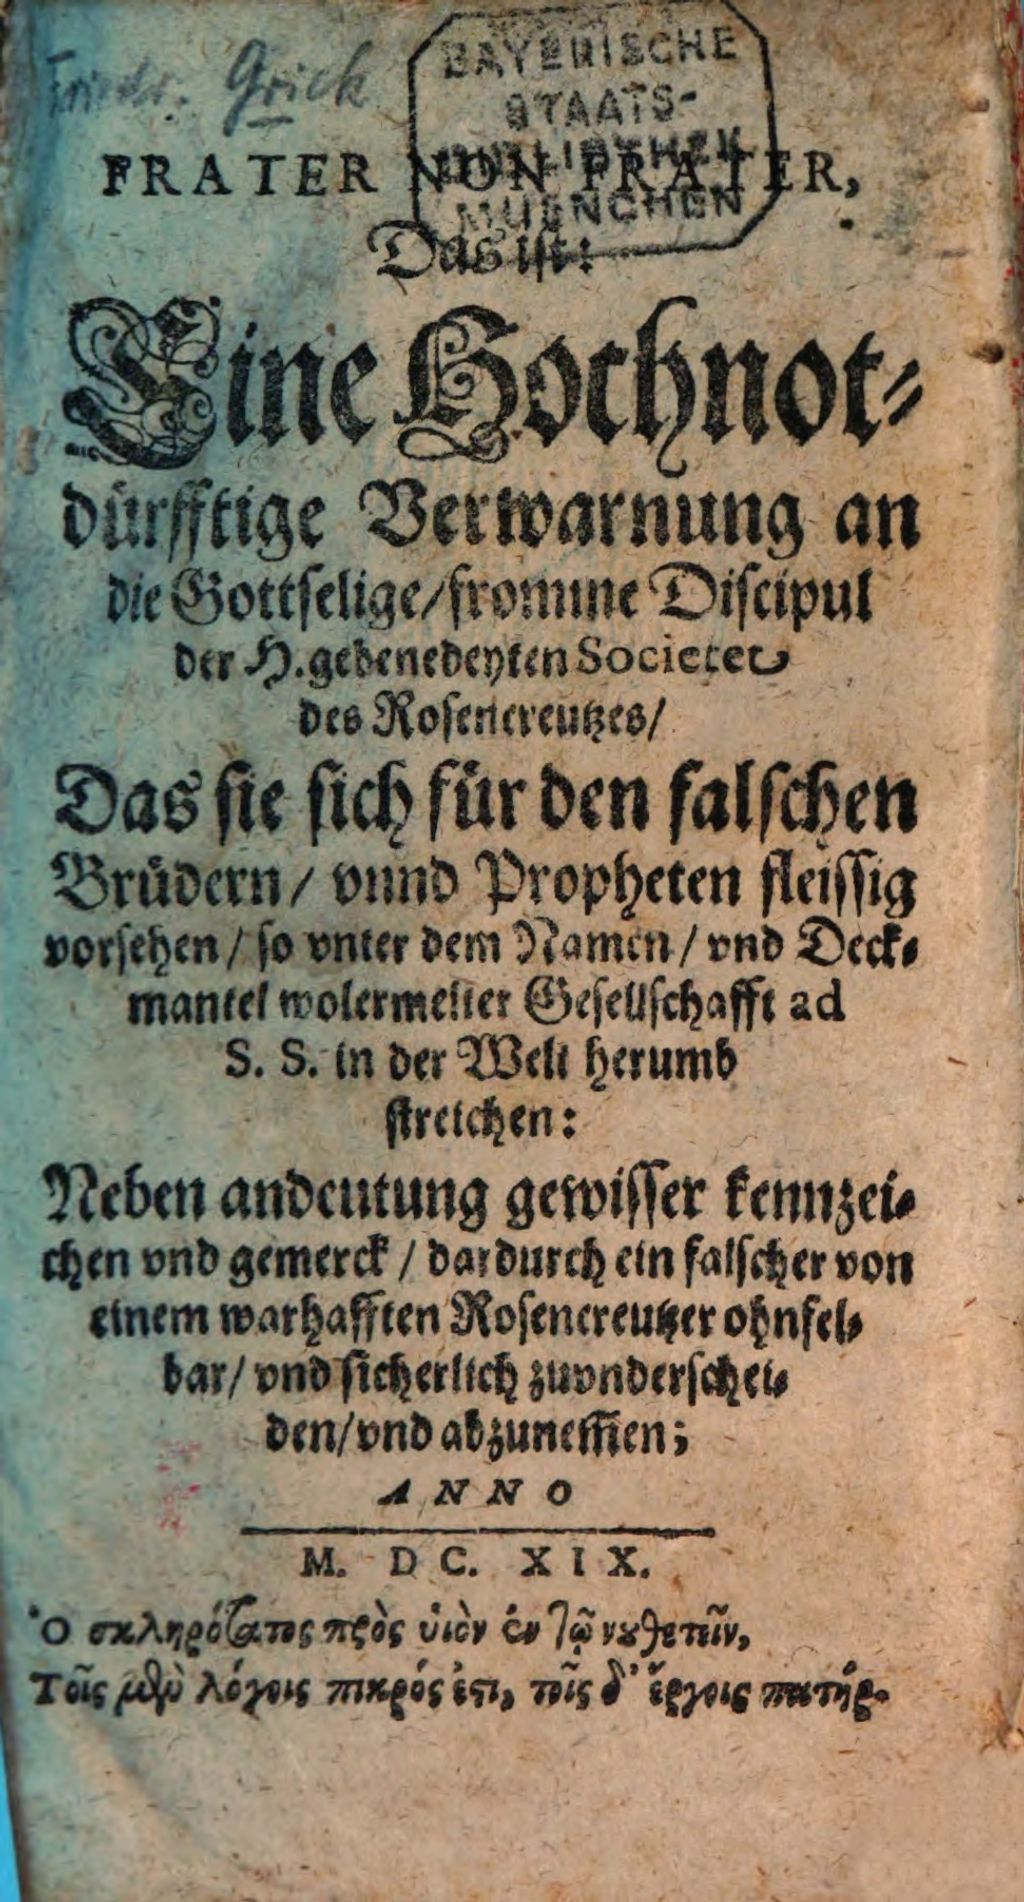 Frieder. Grick
BAYERISCHE
STAATS-
BIBLIOTHEK
MUENCHEN
FRATER NON FRATER,
Das ist:
Eine Hochnot-
dürfftige Verwarnung an
die Gottselige/fromme Discipul
der H.gebenedeyten Societet
des Rosencreutzes/
Das sie sich für den falschen
Brüdern/ vnnd Propheten fleissig
vorsehen/ so vnter dem Namen/ vnd Deck-
mantel wolermelter Gesellschafft ad
S. S. in der Welt herumb
streichen:
Neben andeutung gewisser kennzei-
chen vnd gemerck/ dardurch ein falscher von
einem warhafften Rosencreutzer ohnfel-
bar/ vnd sicherlich zuvnderschei-
den/vnd abzunem̃en;
ANNO
M. DC. XIX.
Ὁ σκληρότατος πρὸς ὑιὸν ἐν τῷ νουθετεῖν,
Τοῖς μὲν λόγοις πικρός ἐστι, τοῖς δ' ἔργοις πατήρ.